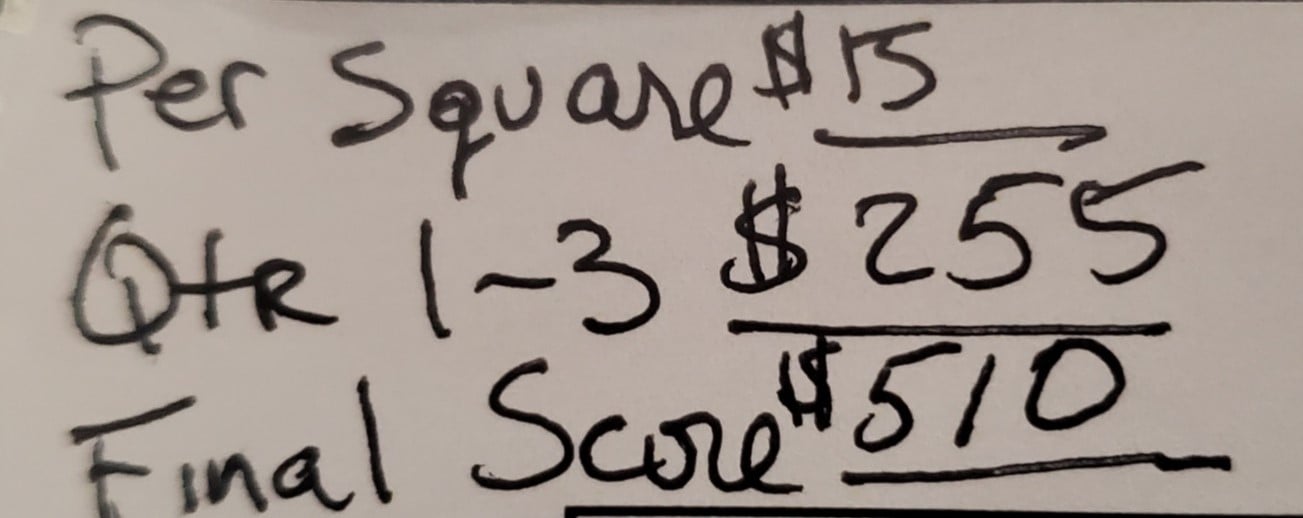 Per Square $15
Qtr 1-3 $255
Final Score $510